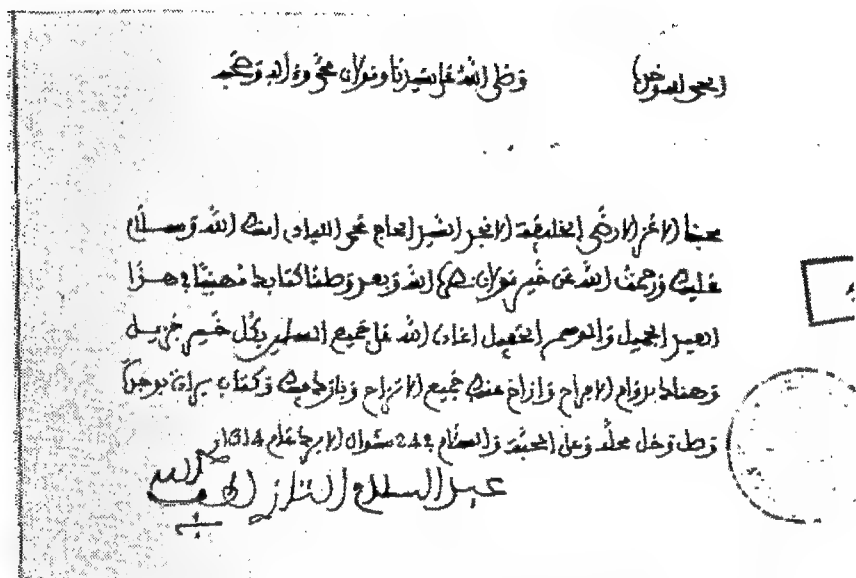 الحمد لله وحده وصلى الله على سيدنا ومولانا محمد وءاله وصحبه
محبنا الاعز الارضى الخليفة الانجد السيد الحاج محمد اللبادي امنك الله وسلام
عليك ورحمت الله عن خير مولانا نصره الله وبعد وصلنا كتابك مهنيئا بهذا
العيد الجميل والموسم الحفيل اعاده الله على جميع المسلمين بكل خير جزيل
وهناك بدوام الافراح وازاح عنك جميع الاتراح وبارك فيك وكتاب
وصل وحل محله وعلى المحبة والسلام شوال الابرك عام 1314
عبد السلام التازي لطف الله به